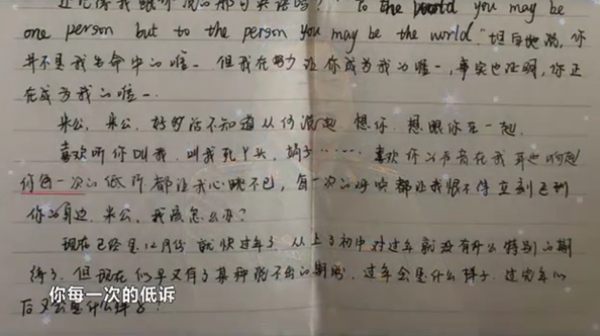 还记得我跟你说的那句英语吗？"To the world you may be
one person but to the person you may be the world."坦白地说，你
并不是我生命中的唯一. 但我在努力让你成为我的唯一，事实也证明，你正
在成为我的唯一.
米公，米公，好多话不知道从何说起 想你，想跟你在一起.
喜欢听你叫我，叫我死丫头，…… 喜欢你的声音在我耳边响起
你每一次的低诉都让我心跳不已，每一次的呼唤都让我恨不得立刻飞到
你的身边. 米公，我该怎么办？
现在已经是12月份 就快过年了. 从上了初中对过年就没有什么特别的期
待了. 但现在似乎又有了某种说不出的期盼. 过年会是什么样子. 过完年以
后又会是什么样子？
你每一次的低诉